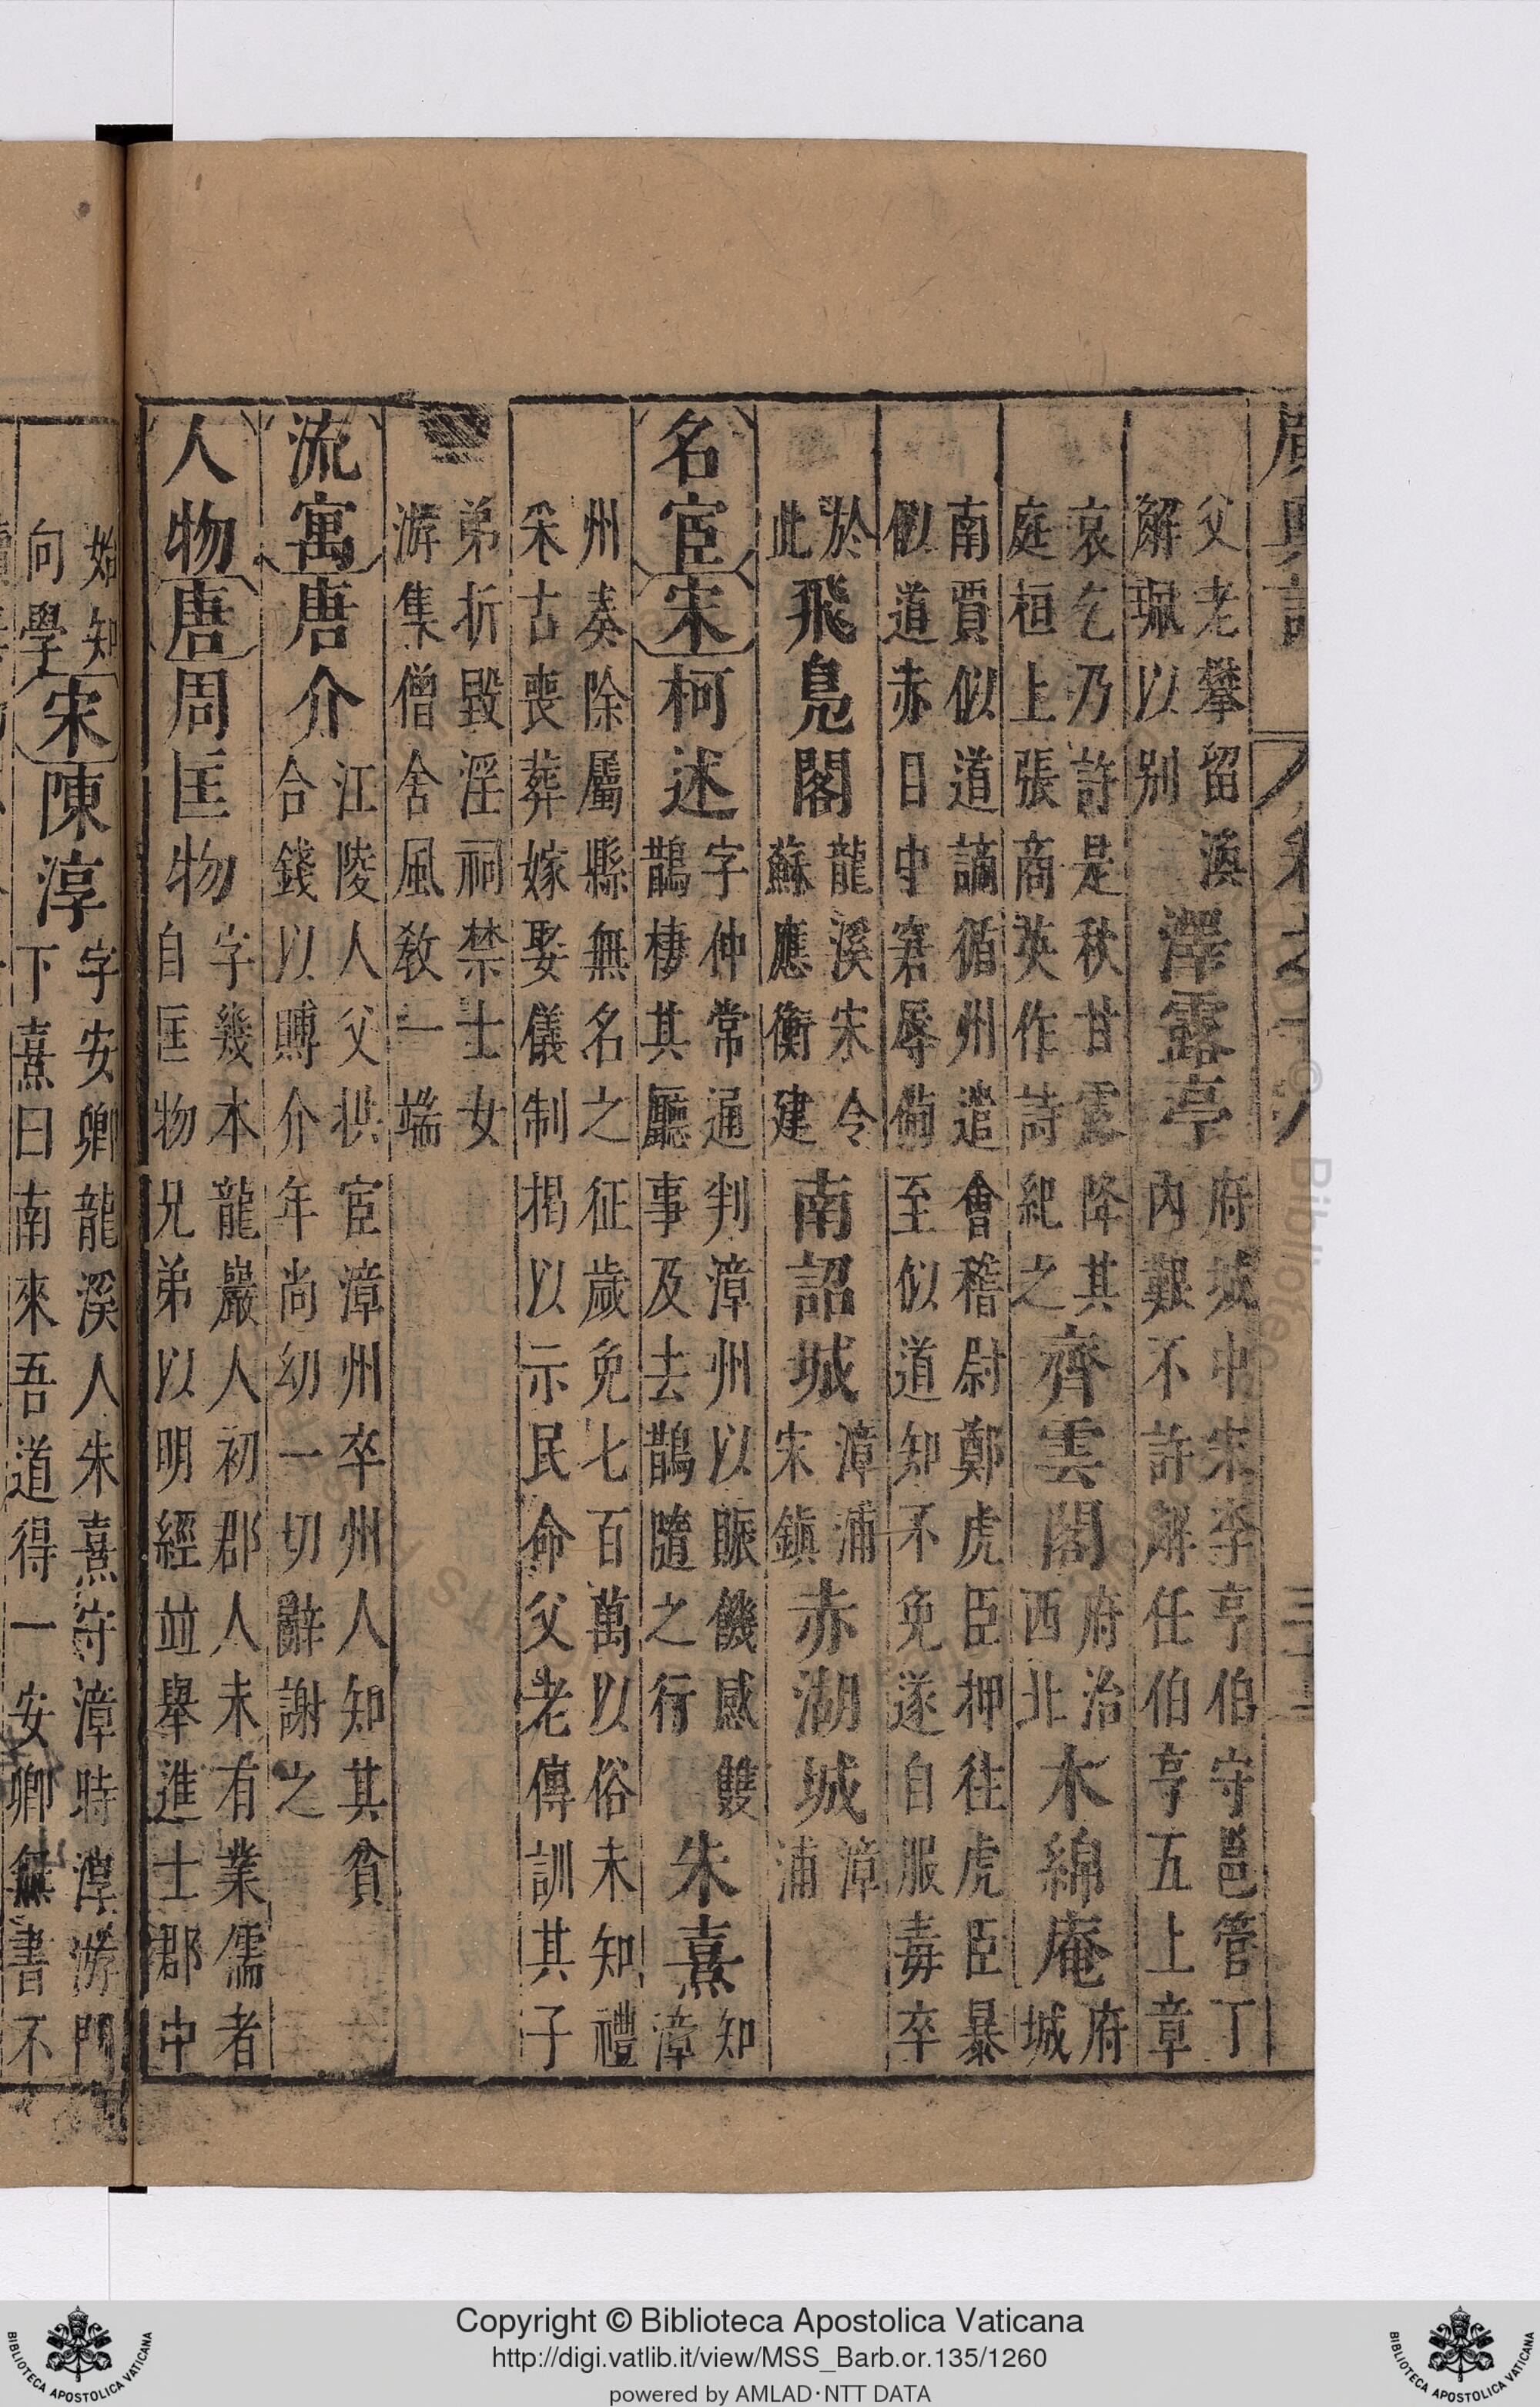 父老攀留漁
解珮以别
澤露亭
府城中宋李亨伯守邕管丁
內艱不許解任伯亨五上章
哀乞乃許是秋甘露降其
庭桓上張商英作詩紀之
齊雲閣
府治
西北
木綿庵
府
城
南賈似道謫循州遣會稽尉鄭虎臣押徃虎臣暴
似道赤日中窘辱備至似道知不免遂自服毒卒
於
此
飛鳧閣
龍溪宋令
蘇應衡建
南詔城
漳浦
宋鎮
赤湖城
漳
浦
名宦
宋
柯述
字仲常通判漳州以賑饑感雙
鵲棲其廳事及去鵲隨之行
朱熹
知
漳
州奏除屬縣無名之征歲免七百萬以俗未知禮
采古喪葬嫁娶儀制揭以示民命父老傳訓其子
弟折毀淫祠禁士女
游集僧舍風敎一端
流寓
唐介
江陵人父拱宦漳州卒州人知其貧
合錢以賻介年尚幼一切辭謝之
人物
唐
周匡物
字幾本龍巖人初郡人未有業儒者
自匡物兄弟以明經竝舉進士郡中
始知
向學
宋
陳淳
字安卿龍溪人朱熹守漳時淳游門
下熹曰南來吾道得一安卿無書不
Copyright © Biblioteca Apostolica Vaticana
http://digi.vatlib.it/view/MSS_Barb.or.135/1260
powered by AMLAD·NTT DATA
BIBLIOTECA APOSTOLICA VATICANA
BIBLIOTECA APOSTOLICA VATICANA